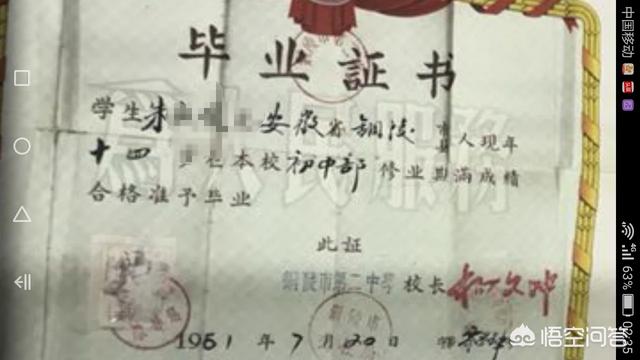 毕业证书
学生朱 安徽省铜陵市县人现年
十四 在本校初中部修业期满成绩
合格准予毕业
此证
铜陵市第二中学 校长
1961年7月20日
为人民服务
中国移动
4G
63%
02:35
悟空问答